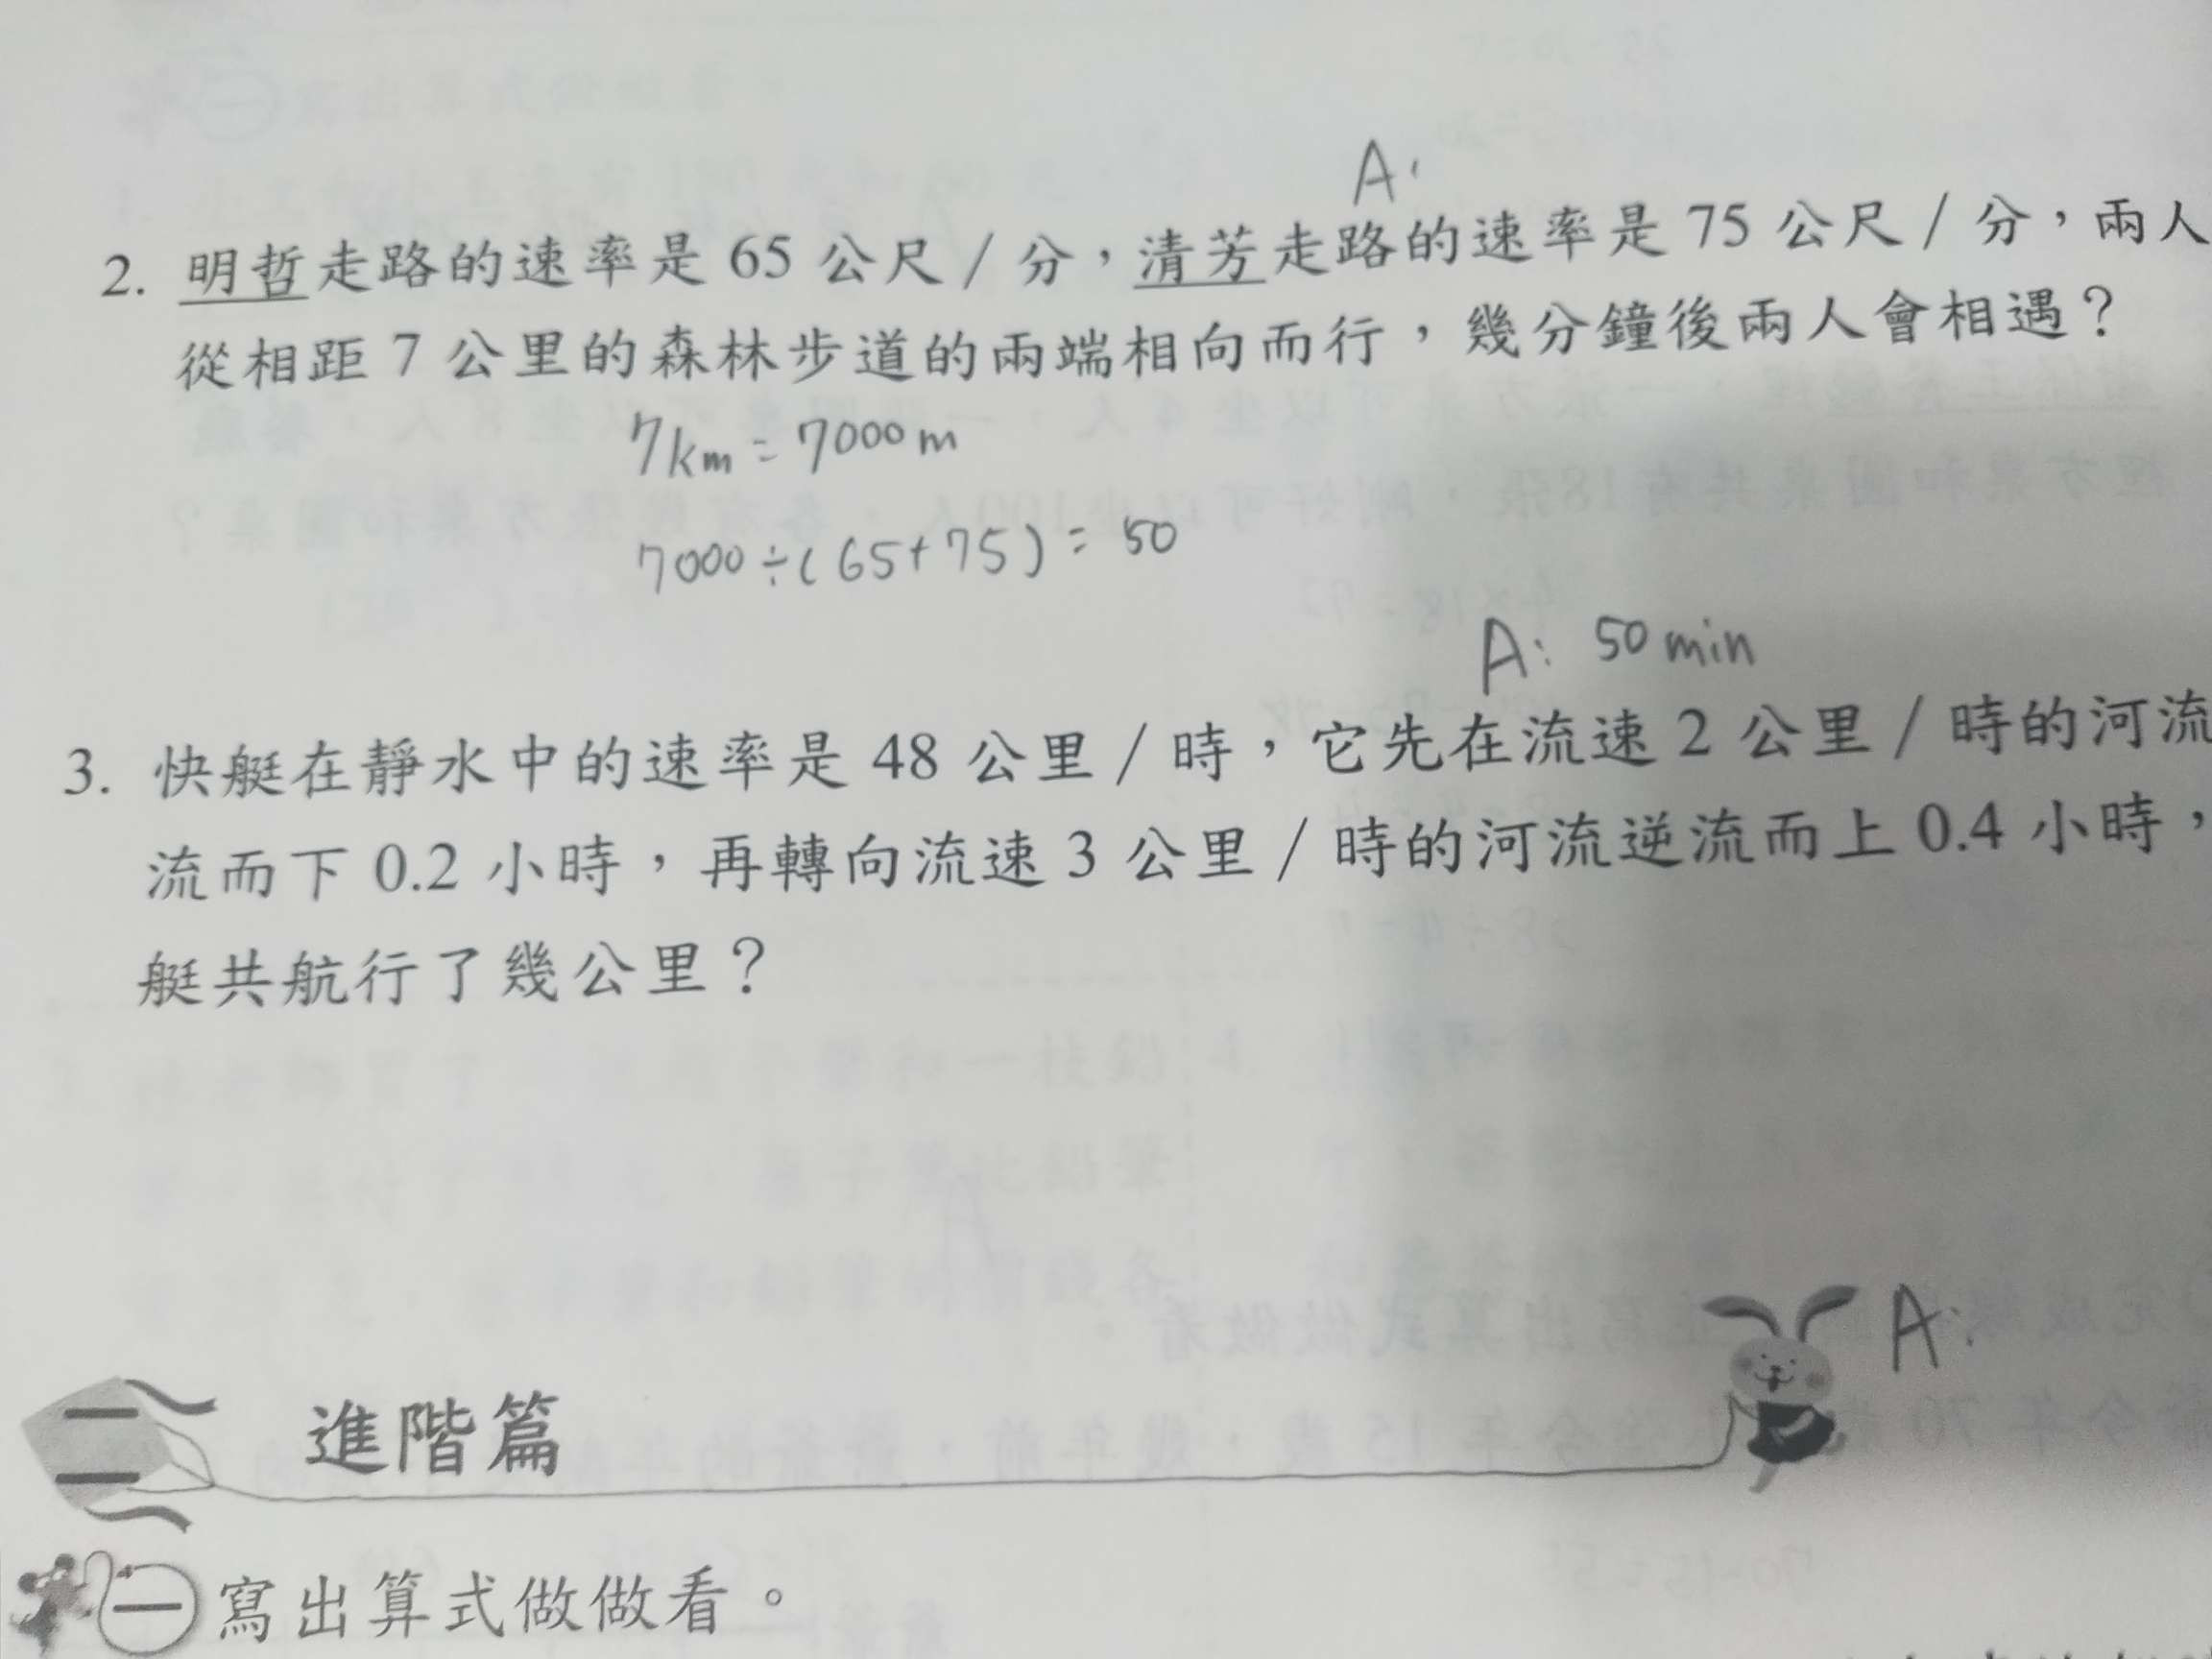 A:
2. 明哲走路的速率是 65 公尺/分，清芳走路的速率是 75 公尺/分，兩人
從相距 7 公里的森林步道的兩端相向而行，幾分鐘後兩人會相遇？
7km = 7000m
7000÷(65+75) = 50
A: 50 min
3. 快艇在靜水中的速率是 48 公里/時，它先在流速 2 公里/時的河流
流而下 0.2 小時，再轉向流速 3 公里/時的河流逆流而上 0.4 小時，
艇共航行了幾公里？
A:
二 進階篇
一 寫出算式做做看。